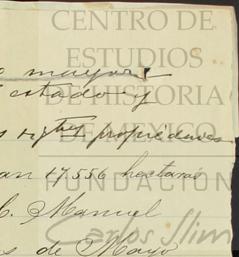 CENTRO DE
ESTUDIOS
DE HISTORIA
DE MEXICO
FUNDACIÓN
Carlos Slim
mayor
estado y
propiedades
17.556 hectareas
C. Manuel
de Mayo